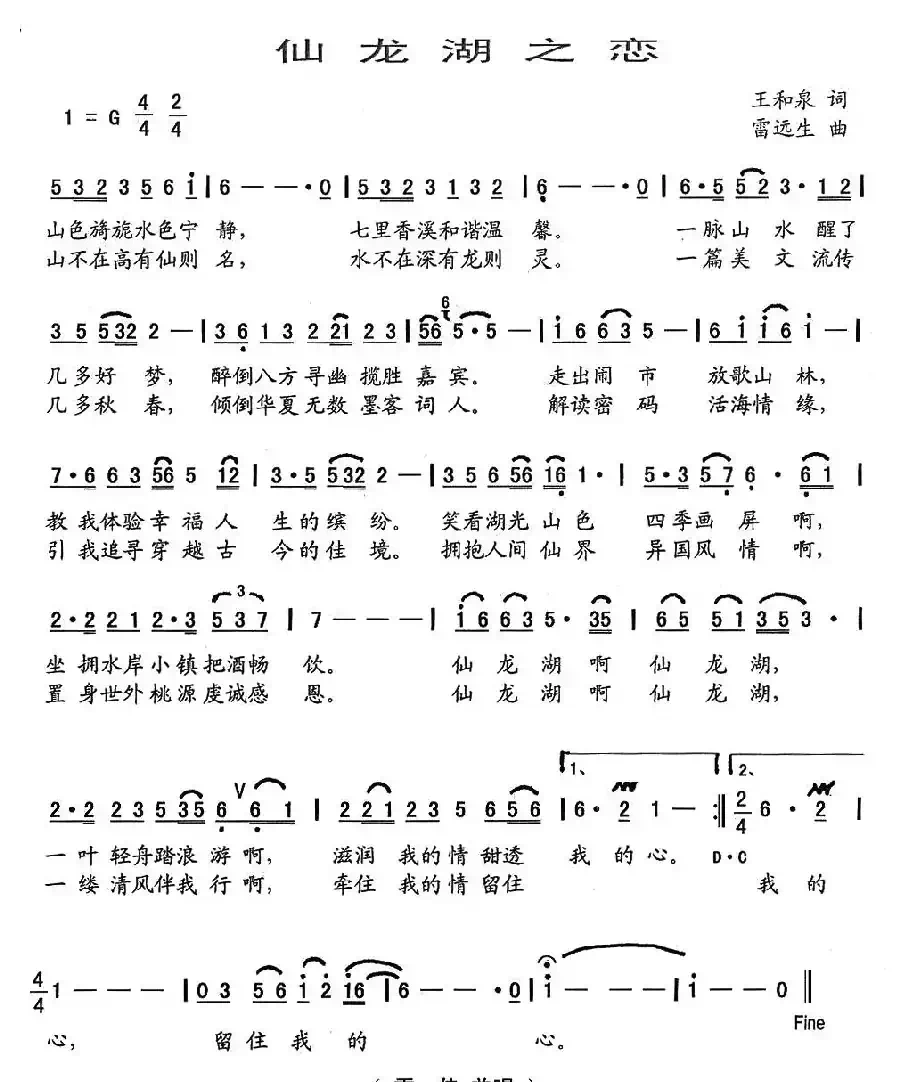 仙龙湖之恋
王和泉 词
1 = G 4/4 2/4
雷远生 曲
5 3 2 3 5 6 i | 6 — — · 0 | 5 3 2 3 1 3 2 | 6 — — · 0 | 6 · 5 5 2 3 · 1 2 |
山色旖旎水色宁 静, 七里香溪和谐温 馨。 一脉山 水 醒了
山不在高有仙则 名, 水不在深有龙则 灵。 一篇美 文 流传
3 5 5 3 2 2 — | 3 6 1 3 2 2 1 2 3 | 5 6 6 5 · 5 — | i 6 6 3 5 — | 6 i i 6 i — |
几多好 梦, 醉倒八方寻幽 揽胜 嘉宾。 走出闹 市 放歌山 林,
几多秋 春, 倾倒华夏无数 墨客 词人。 解读密 码 活海情 缘,
7 · 6 6 3 5 6 5 1 2 | 3 · 5 5 3 2 2 — | 3 5 6 5 6 1 6 1 · | 5 · 3 5 7 6 · 6 1 |
教我体验幸福人 生的缤 纷。 笑看湖光山色 四季画 屏 啊,
引我追寻穿越古 今的佳 境。 拥抱人间仙界 异国风 情 啊,
2 · 2 2 1 2 · 3 5 3 7 | 7 — — — | i 6 6 3 5 · 3 5 | 6 5 5 1 3 5 3 · |
坐拥水岸小镇把酒畅 饮。 仙 龙 湖 啊 仙 龙 湖,
置身世外桃源虔诚感 恩。 仙 龙 湖 啊 仙 龙 湖,
1、 2、
2 · 2 2 3 5 3 5 6 V 6 1 | 2 2 1 2 3 5 6 5 6 | 6 · 2 1 — :| 2/4 6 · 2 |
一叶轻舟踏浪 游 啊, 滋润 我的情 甜透 我 的 心。 D·C
一缕清风伴我 行 啊, 牵住 我的情 留住 我 的
4/4 1 — — — | 0 3 5 6 i 2 1 6 | 6 — — · 0 | i — — — | i — — 0 ‖
心, 留 住 我 的 心。
Fine